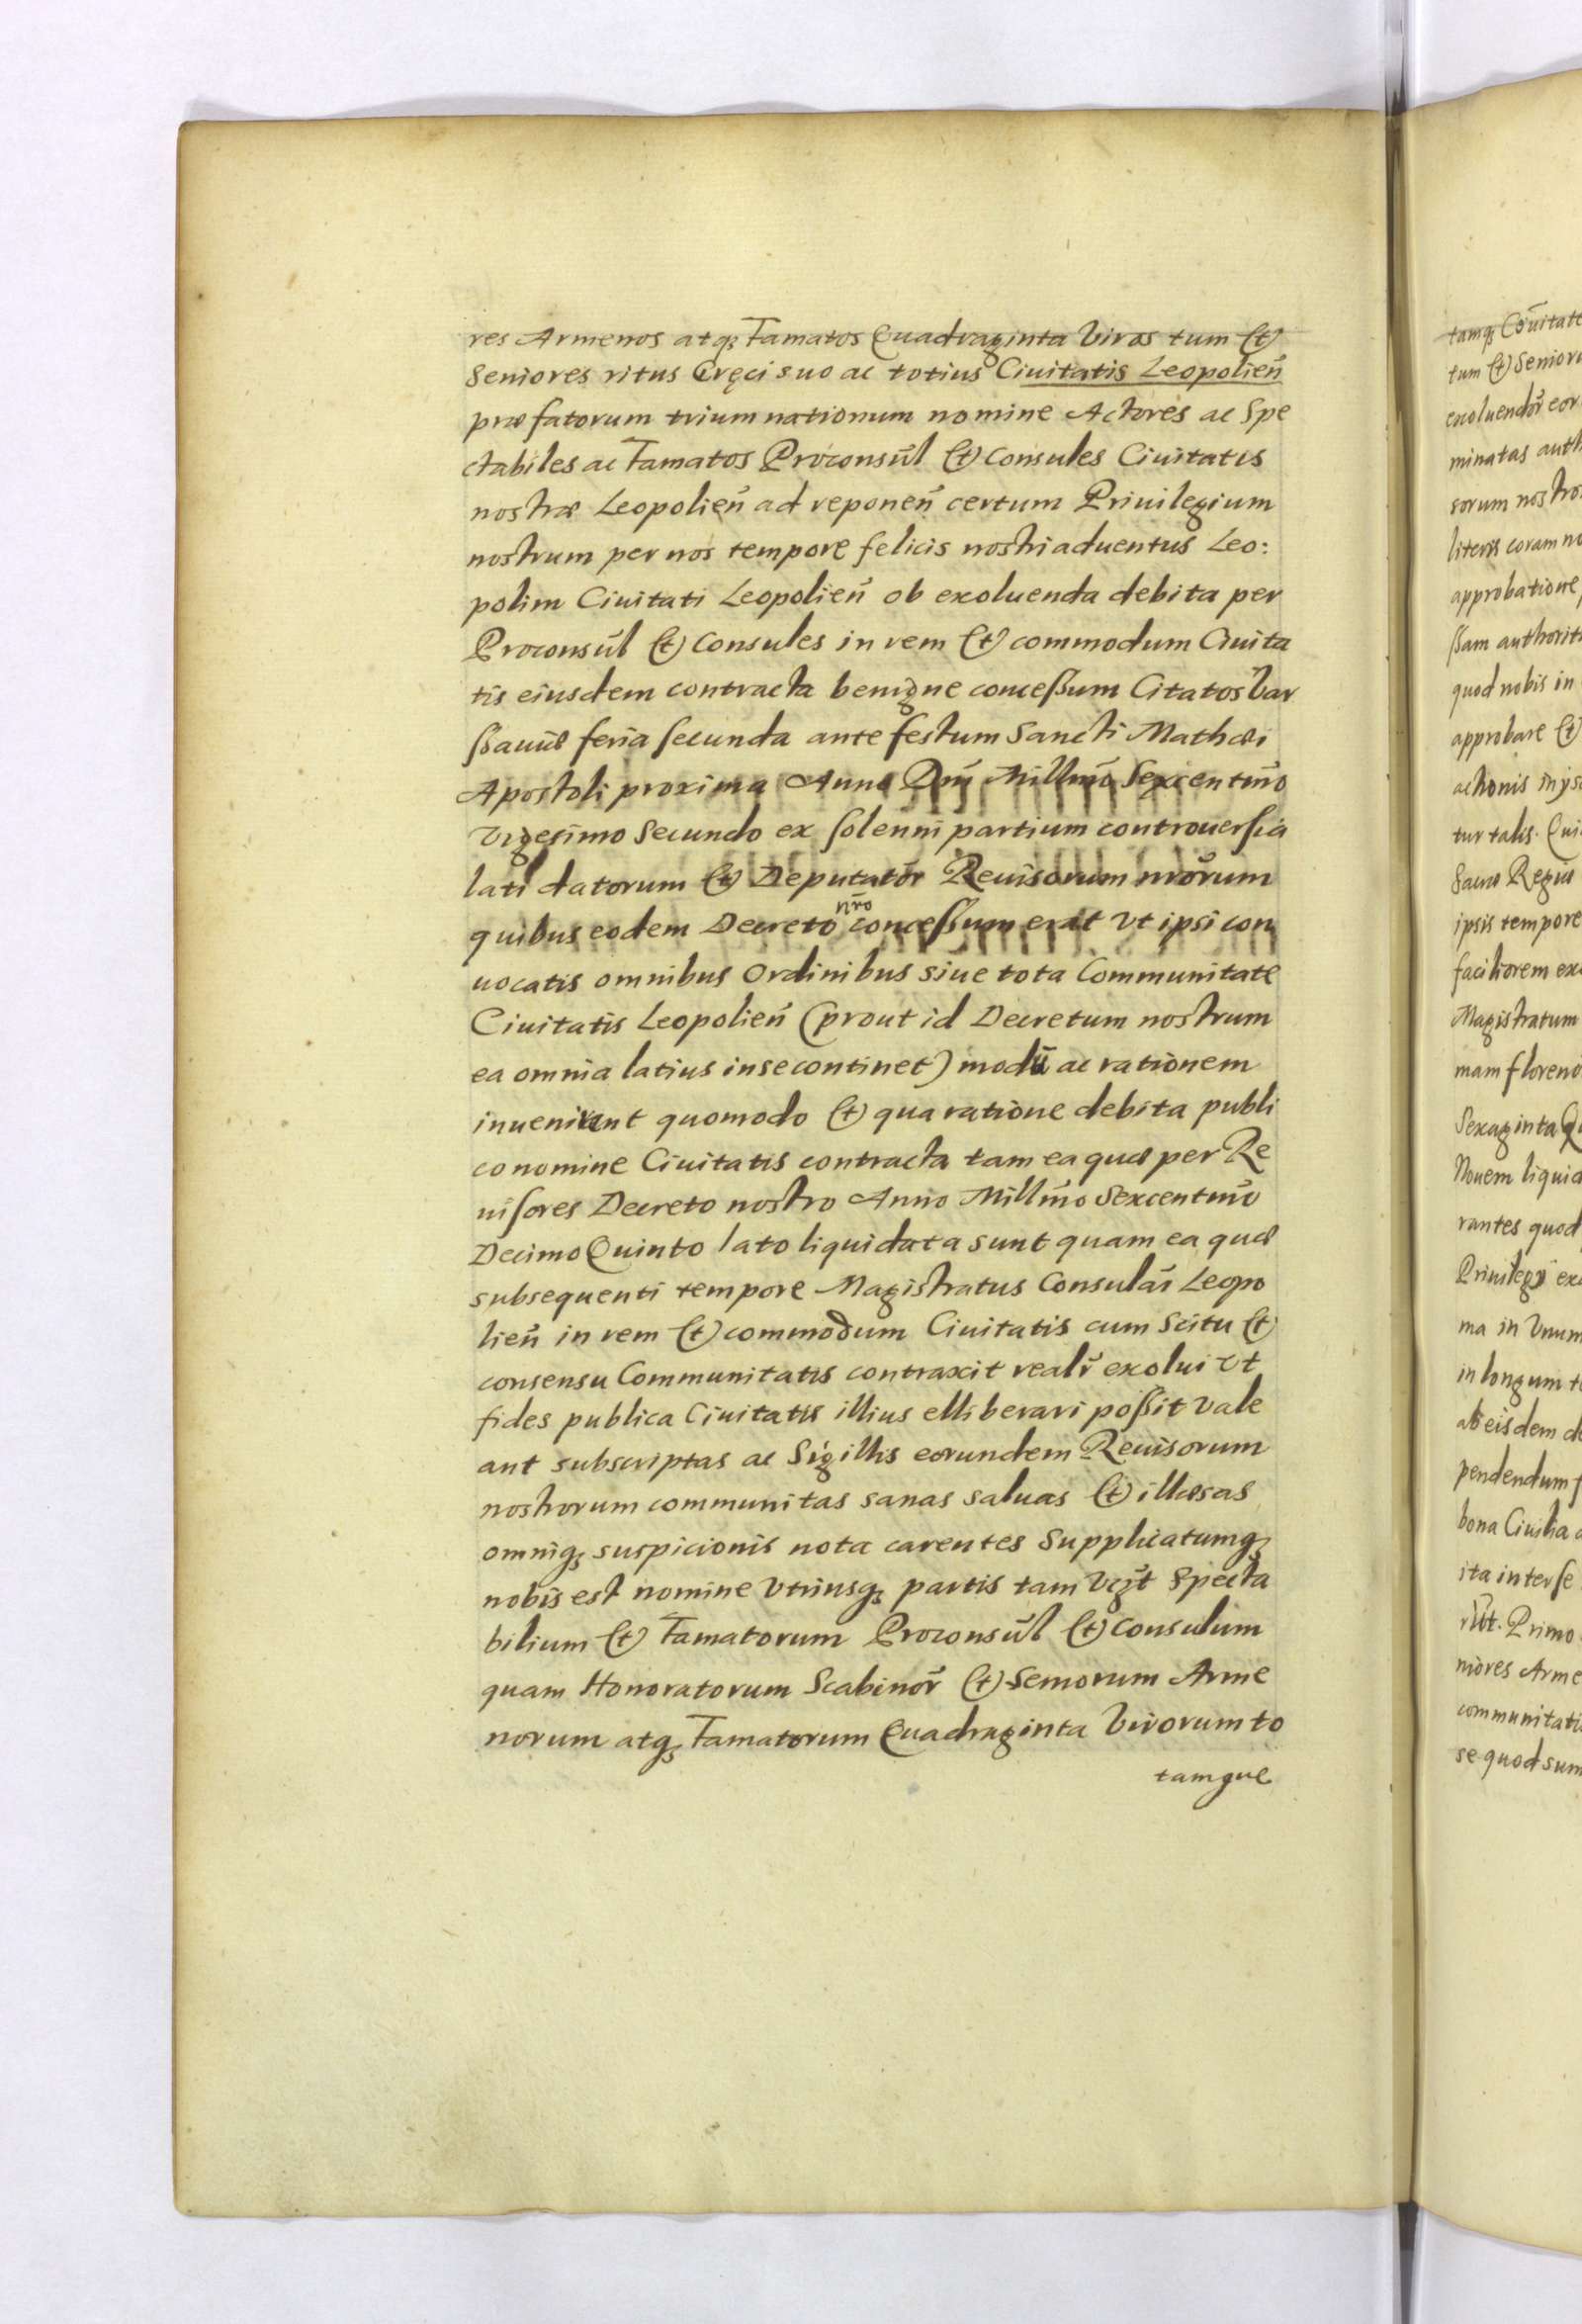 res Armenos atq; Famatos Quadraginta Viros tum et
Seniores ritus Gręci suo ac totius Ciuitatis Leopolieñ
præfatorum trium nationum nomine Actores ac Spe
ctabiles ac Famatos Proconsūl et Consules Ciuitatis
nostræ Leopolieñ ad reponeñ certum Priuilegium
nostrum per nos tempore felicis nostri aduentus Leo:
polim Ciuitati Leopolieñ ob exoluenda debita per
Proconsūl et Consules in rem et commodum Ciuita
tis eiusdem contracta benigne conceßum Citatos Var
ßauiæ feria secunda ante festum Sancti Mathæi
Apostoli proxima Anno Dnī Millmō Sexcentmō
Vigesimo Secundo ex solenni partium controuersia
lati datorum et Deputatōr Reuisorum nrōrum
quibus eodem Decreto nrō conceßum erat Vt ipsi con
uocatis omnibus Ordinibus siue tota Communitate
Ciuitatis Leopolieñ (prout id Decretum nostrum
ea omnia latius in se continet) modū ac rationem
inuenirent quomodo et qua ratione debita publi
co nomine Ciuitatis contracta tam ea quæ per Re
uisores Decreto nostro Anno Millmō Sexcentmō
Decimo Quinto lato liquidata sunt quam ea quæ
subsequenti tempore Magistratus Consulāi Leopo
lieñ in rem et commodum Ciuitatis cum Scitu et
consensu Communitatis contraxit realr̄ exolui Vt
fides publica Ciuitatis illius elliberari poßit Vale
ant subscriptas ac Sigillis eorundem Reuisorum
nostrorum communitas sanas saluas et illæsas
omniq; suspicionis nota carentes Supplicatumq;
nobis est nomine Vtriusq; partis tam Vꝫt Specta
bilium et Famatorum Proconsūl et Consulum
quam Honoratorum Scabinōr et Seniorum Arme
norum atq; Famatorum Quadraginta Virorum to
tamque
tamq; Cōuitate
tum et Senioru
exoluendōr eor
minatas auth
sorum nostro
literis coram no
approbatione
ßam authorit
quod nobis in
approbare et
actionis in ys
tur talis. Qui
Sacræ Regiæ
ipsis tempore
faciliorem ex
Magistratum
mam floreno
Sexaginta Q
Nouem liquid
rantes quod
Priuilegy ex
ma in Vnum
in longum t
ab eisdem d
pendendum
bona Ciuilia
ita inter se
Primo
niores Arme
communitati
se quod sum